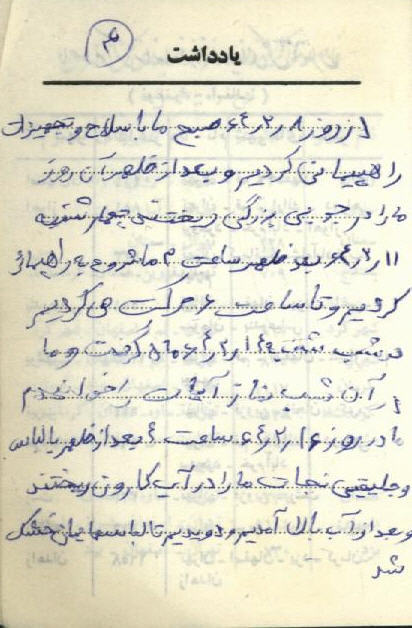 ۳
یادداشت
از روز ۸ر۲ر۶۴ صبح ما با سلاح و تجهیزات
راهپیمائی کردیم و بعد از ظهر آن روز
ما را در جوبی بزرگی ریختند چهارشنبه
۱۱ر۲ر۶۴ بعد ظهر ساعت ۳ ما شروع به راهپیمائی
کردیم و تا ساعت ۶ حرکت می کردیم
در شب شنبه ۱۴ر۲ر۶۴ گرفت و ما
آن شب نماز آیات را خواندم
ما در روز ۱۶ر۲ر۶۴ ساعت ۴ بعد از ظهر با لباس
و جلیقیی نجات ما را در آب کارون ریختند
و بعد از آب بالا آمدیم و دویدیم تا لباسهایمان خشک
شد